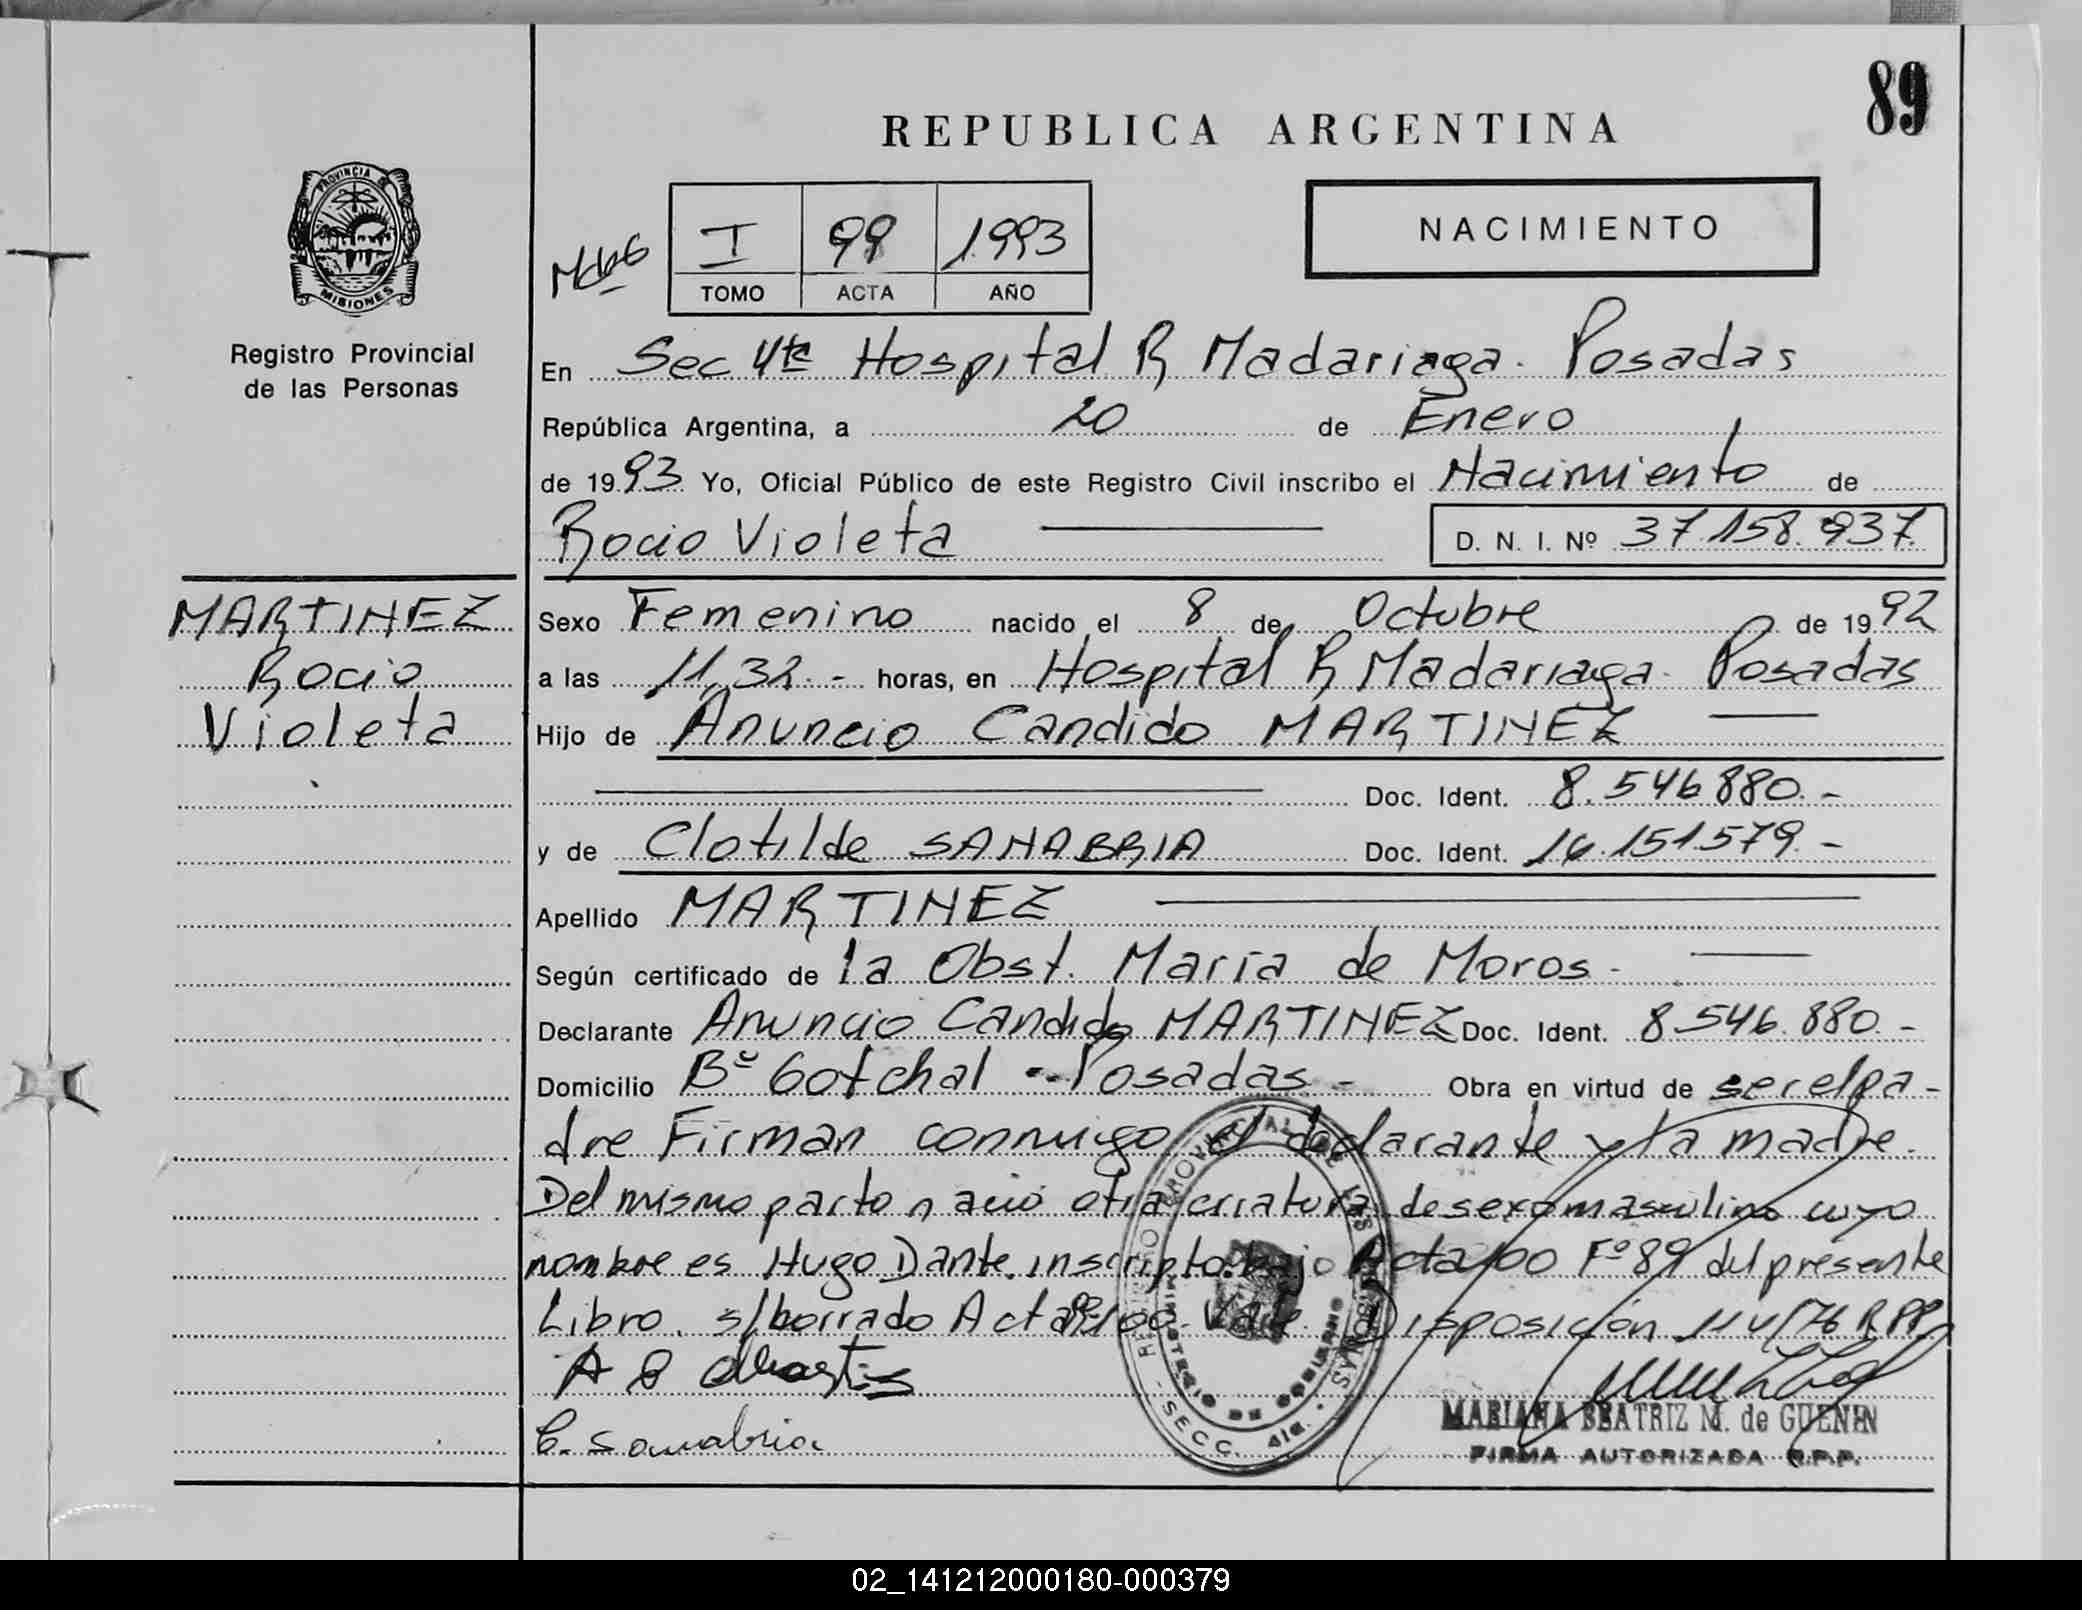 89
REPUBLICA ARGENTINA
PROVINCIA DE
MISIONES
Registro Provincial
de las Personas
I 99 1993
TOMO ACTA AÑO
NACIMIENTO
En Sec 4ta Hospital R Madariaga. Posadas
República Argentina, a 20 de Enero
de 1993 Yo, Oficial Público de este Registro Civil inscribo el Nacimiento de
Rocio Violeta
D. N. I. Nº 37.158.937.
MARTINEZ
Rocio
Violeta
Sexo Femenino nacido el 8 de Octubre de 1992
a las 11,32.- horas, en Hospital R Madariaga. Posadas
Hijo de Anuncio Candido MARTINEZ
Doc. Ident. 8.546.880.-
y de Clotilde SANABRIA Doc. Ident. 16.151.579.-
Apellido MARTINEZ
Según certificado de la Obst. Maria de Moros.
Declarante Anuncio Candido MARTINEZ Doc. Ident. 8.546.880.-
Domicilio Bº Gotchal - Posadas - Obra en virtud de ser el pa-
dre Firman conmigo el declarante y la madre.
Del mismo parto nació otra criatura de sexo masculino cuyo
nombre es Hugo Dante. inscripto bajo Acta 100 Fº 89 del presente
Libro. s/borrado Acta 99, 100. Vale. Disposición /76 R.P.P.
C. Sanabria
REGISTRO PROVINCIAL DE LAS PERSONAS
MINISTERIO DE GOBIERNO
SECC.
MARIANA BEATRIZ M. de GUENIN
FIRMA AUTORIZADA R.P.P.
02_141212000180-000379